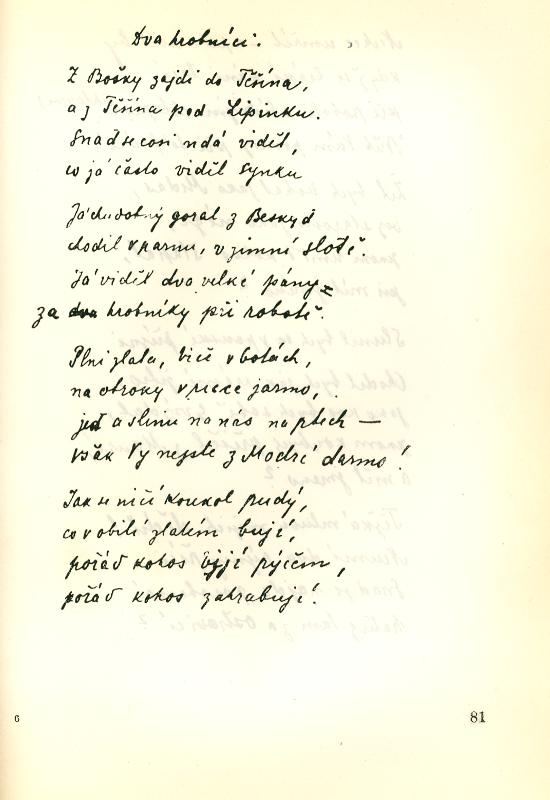 Dva hrobníci.
Z Bošky zajdi do Těšína,
a z Těšína pod Lipinku.
Snad se cosi ndá viděť,
co já často viděl synku
Já chudobný goral z Beskyd
chodil v parnu, v zimní slotě.
Já viděl dva velké pány
za dva hrobníky při robotě.
Plni zlata, v botách,
na otroky v ruce jarmo,
jed a slinu na nás na rtech —
však Vy nejste z Modré darmo!
Jak se ničí koukol rudý,
co v obilí zlatém bují,
pořád kohos bijí rýčem,
pořád kohos zahrabují.
6
81